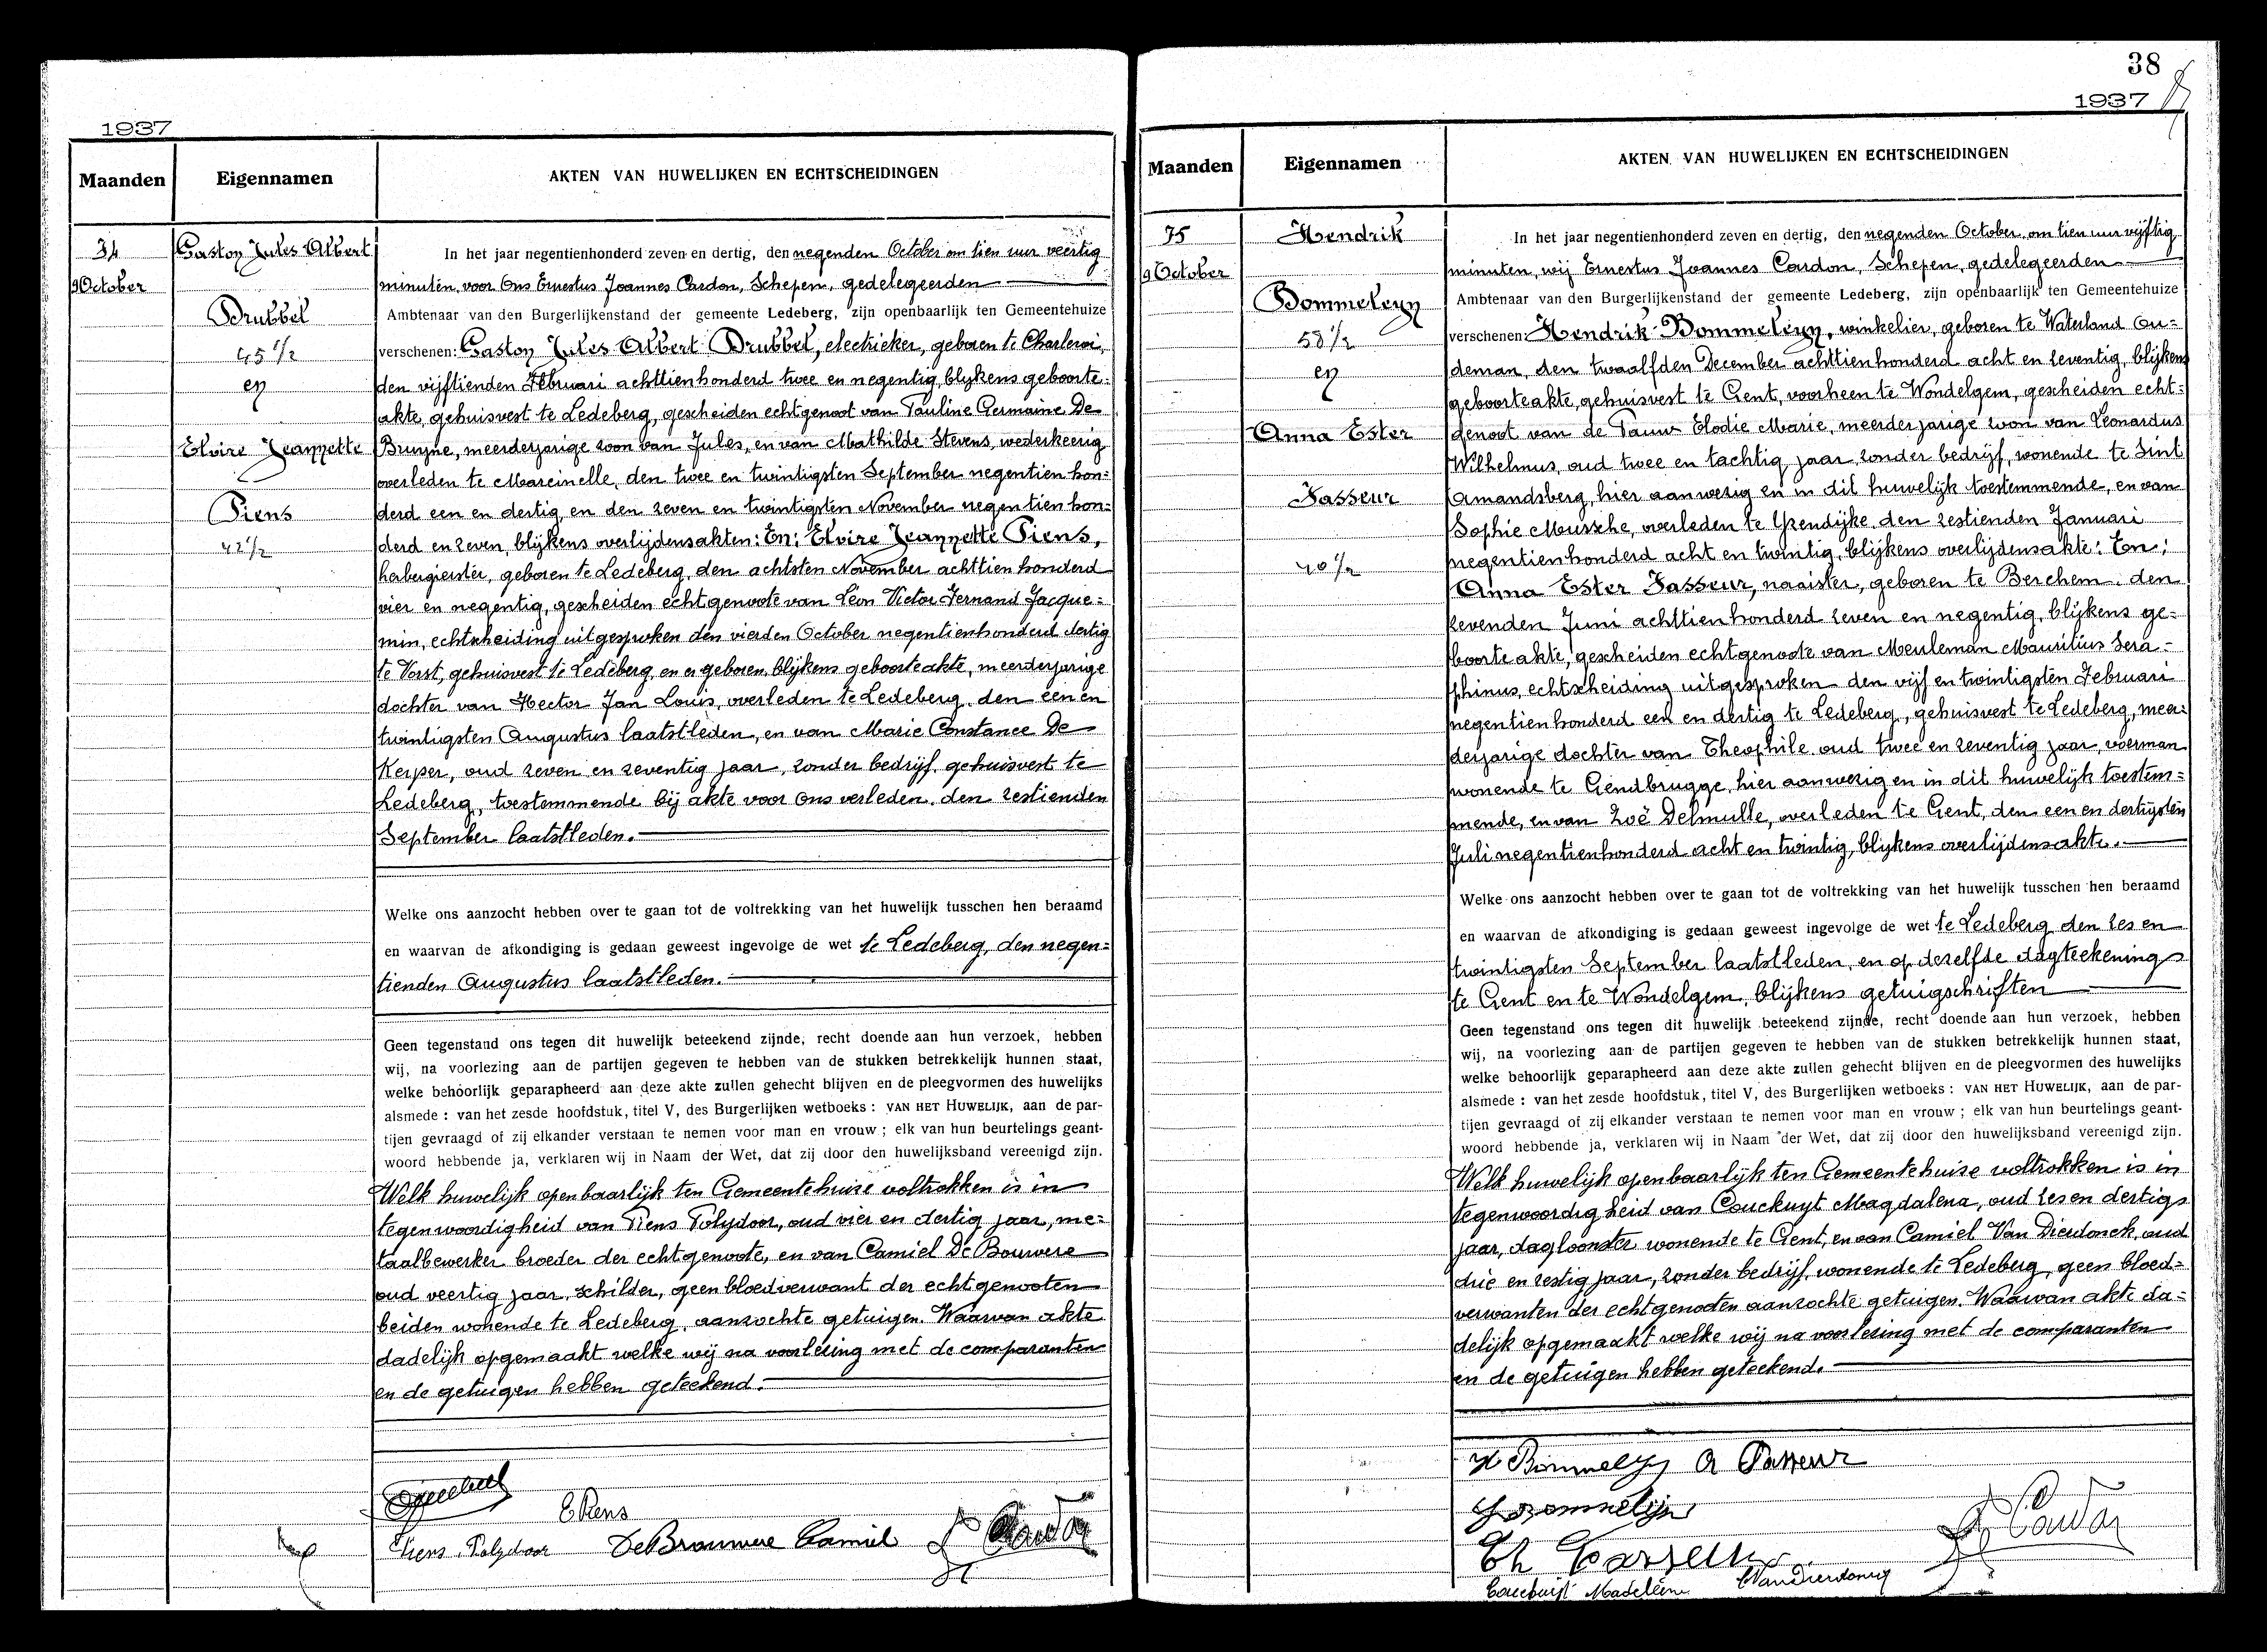 1937
Maanden
Eigennamen
AKTEN VAN HUWELIJKEN EN ECHTSCHEIDINGEN
74
9 October
Gaston Jules Albert
Drubbel
45 1/2
en
Elvire Jeannette
Piens
42 1/2
In het jaar negentienhonderd zeven en dertig, den negenden October om tien uur veertig
minuten, voor Ons Ernestus Joannes Cardon, Schepen, gedelegeerden
Ambtenaar van den Burgerlijkenstand der gemeente Ledeberg, zijn openbaarlijk ten Gemeentehuize
verschenen: Gaston Jules Albert Drubbel, electrieker, geboren te Charleroi,
den vijftienden Februari achttienhonderd twee en negentig, blijkens geboorte-
akte, gehuisvest te Ledeberg, gescheiden echtgenoot van Pauline Germaine De
Bruyne, meerderjarige zoon van Jules, en van Mathilde Stevens, wederkeerig
overleden te Marcinelle, den twee en twintigsten September negentien hon=
derd een en dertig, en den zeven en twintigsten November negentien hon=
derd en zeven, blijkens overlijdensakten: En: Elvire Jeannette Piens,
herbergierster, geboren te Ledeberg, den achtsten November achttien honderd
vier en negentig, gescheiden echtgenoote van Léon Victor Fernand Jacque=
min, echtscheiding uitgesproken den vierden October negentienhonderd dertig
te Vorst, gehuisvest te Ledeberg, en er geboren, blijkens geboorteakte, meerderjarige
dochter van Hector Jan Louis, overleden te Ledeberg, den een en
twintigsten Augustus laatstleden, en van Marie Constance De
Keyser, oud zeven en zeventig jaar, zonder bedrijf, gehuisvest te
Ledeberg, toestemmende bij akte voor Ons verleden, den zestienden
September laatstleden.
Welke ons aanzocht hebben over te gaan tot de voltrekking van het huwelijk tusschen hen beraamd
en waarvan de afkondiging is gedaan geweest ingevolge de wet te Ledeberg, den negen=
tienden Augustus laatstleden.
Geen tegenstand ons tegen dit huwelijk beteekend zijnde, recht doende aan hun verzoek, hebben
wij, na voorlezing aan de partijen gegeven te hebben van de stukken betrekkelijk hunnen staat,
welke behoorlijk geparapheerd aan deze akte zullen gehecht blijven en de pleegvormen des huwelijks
alsmede : van het zesde hoofdstuk, titel V, des Burgerlijken wetboeks : VAN HET HUWELIJK, aan de par-
tijen gevraagd of zij elkander verstaan te nemen voor man en vrouw ; elk van hun beurtelings geant-
woord hebbende ja, verklaren wij in Naam der Wet, dat zij door den huwelijksband vereenigd zijn.
Welk huwelijk openbaarlijk ten Gemeentehuize voltrokken is in
tegenwoordigheid van Piens Polydoor, oud vier en dertig jaar, me=
taalbewerker broeder der echtgenoote, en van Camiel De Bouwere
oud veertig jaar, schilder, geen bloedverwant der echtgenooten
beiden wonende te Ledeberg, aanzochte getuigen. Waarvan akte
dadelijk opgemaakt welke wij na voorlezing met de comparanten
en de getuigen hebben geteekend.
E Piens
Piens Polydoor DeBrouwere Camiel Cardon
38
1937
Maanden
Eigennamen
AKTEN VAN HUWELIJKEN EN ECHTSCHEIDINGEN
75
9 October
Hendrik
Bommeleyn
58 1/2
en
Anna Ester
Fasseur
40 1/2
In het jaar negentienhonderd zeven en dertig, den negenden October om tien uur vijftig
minuten, wij Ernestus Joannes Cardon, Schepen, gedelegeerden
Ambtenaar van den Burgerlijkenstand der gemeente Ledeberg, zijn openbaarlijk ten Gemeentehuize
verschenen: Hendrik Bommeleyn, winkelier, geboren te Waterland Ou=
deman, den twaalfden December achttienhonderd acht en zeventig, blijkens
geboorteakte, gehuisvest te Gent, voorheen te Wondelgem, gescheiden echt=
genoot van de Pauw Elodie Marie, meerderjarige zoon van Leonardus
Wilhelmus, oud twee en tachtig jaar, zonder bedrijf, wonende te Sint
Amandsberg, hier aanwezig en in dit huwelijk toestemmende, en van
Sophie Mussche, overleden te Yzendijke, den zestienden Januari
negentienhonderd acht en twintig, blijkens overlijdensakte: En:
Anna Ester Fasseur, naaister, geboren te Berchem, den
zevenden Juni achttienhonderd zeven en negentig, blijkens ge=
boorteakte, gescheiden echtgenoote van Meuleman Mauritius Sera=
phinus, echtscheiding uitgesproken den vijf en twintigsten Februari
negentienhonderd een en dertig te Ledeberg, gehuisvest te Ledeberg, meer=
derjarige dochter van Theophile oud twee en zeventig jaar, voerman
wonende te Gendbrugge, hier aanwezig en in dit huwelijk toestem=
mende, en van Zoë Delmulle, overleden te Gent, den een en dertigsten
Juli negentienhonderd acht en twintig, blijkens overlijdensakte.
Welke ons aanzocht hebben over te gaan tot de voltrekking van het huwelijk tusschen hen beraamd
en waarvan de afkondiging is gedaan geweest ingevolge de wet te Ledeberg den zes en
twintigsten September laatstleden, en op dezelfde dagteekening
te Gent en te Wondelgem, blijkens getuigschriften
Geen tegenstand ons tegen dit huwelijk beteekend zijnde, recht doende aan hun verzoek, hebben
wij, na voorlezing aan de partijen gegeven te hebben van de stukken betrekkelijk hunnen staat,
welke behoorlijk geparapheerd aan deze akte zullen gehecht blijven en de pleegvormen des huwelijks
alsmede : van het zesde hoofdstuk, titel V, des Burgerlijken wetboeks : VAN HET HUWELIJK, aan de par-
tijen gevraagd of zij elkander verstaan te nemen voor man en vrouw ; elk van hun beurtelings geant-
woord hebbende ja, verklaren wij in Naam der Wet, dat zij door den huwelijksband vereenigd zijn.
Welk huwelijk openbaarlijk ten Gemeentehuize voltrokken is in
tegenwoordigheid van Couckuyt Magdalena, oud zes en dertig
jaar, dagloonster wonende te Gent, en van Camiel Van Dierdonck, oud
drie en zestig jaar, zonder bedrijf, wonende te Ledeberg, geen bloed=
verwanten der echtgenooten aanzochte getuigen. Waarvan akte da=
delijk opgemaakt welke wij na voorlezing met de comparanten
en de getuigen hebben geteekend.
H Bommelyn A Fasseur
Cardon